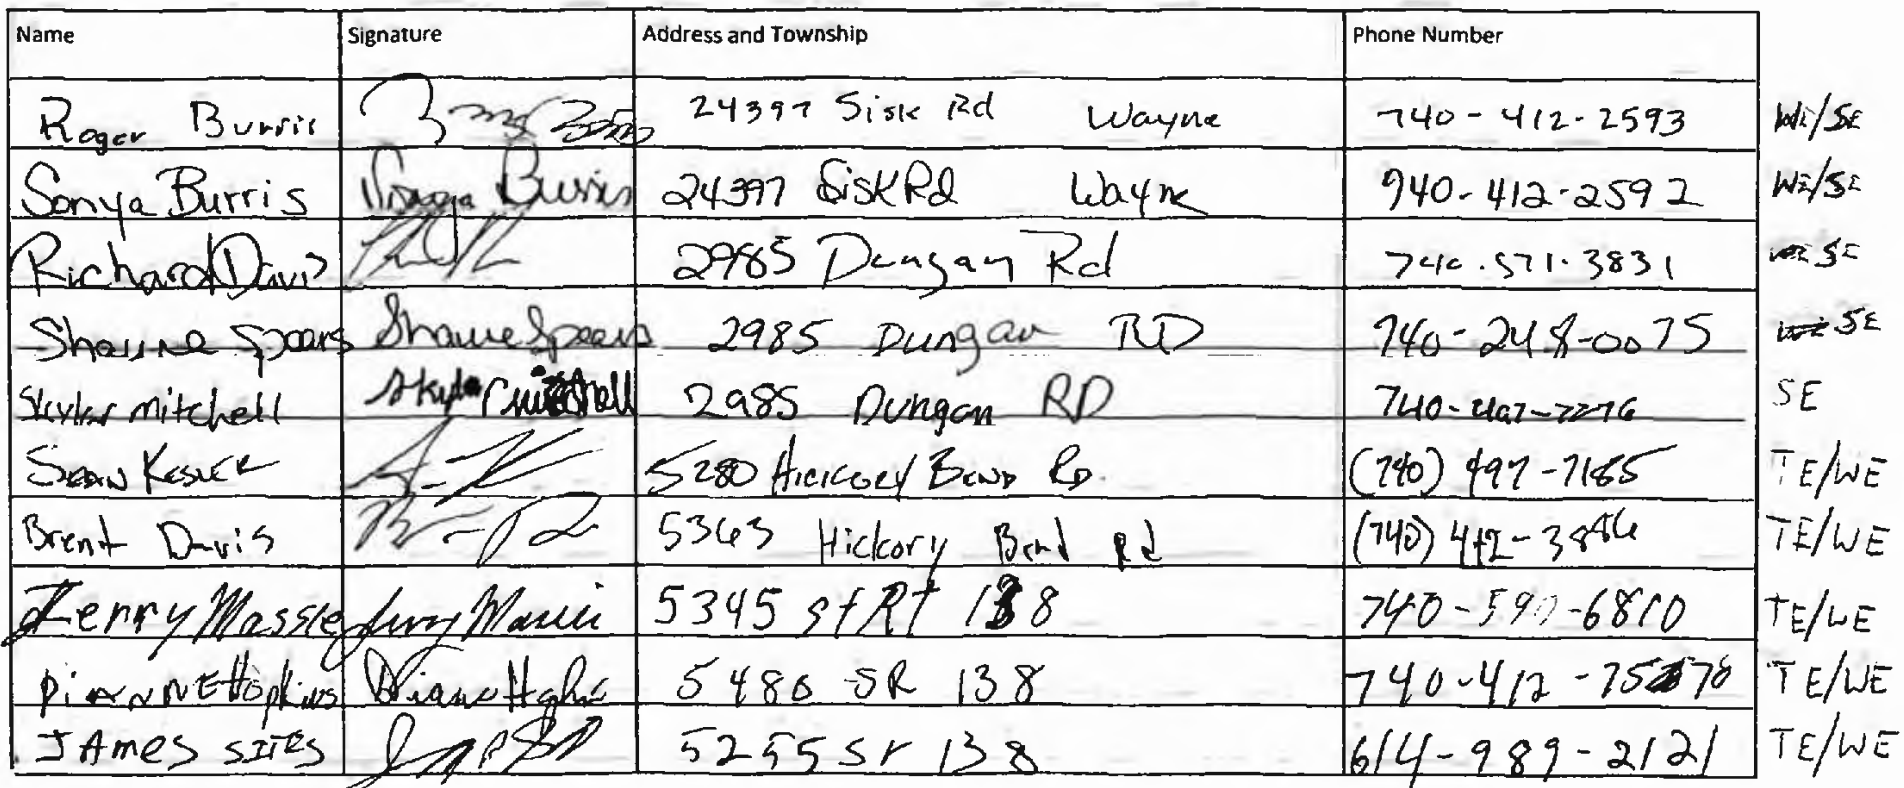 Name Signature Address and Township Phone Number
Roger Burris 24397 Sisk Rd Wayne 740-412-2593 WE/SE
Sonya Burris Sonya Burris 24397 Sisk Rd Wayne 740-412-2592 WE/SE
Richard Davis 2985 Dungan Rd 740.571.3831 SE
Shawne Spears Shawne Spears 2985 Dungan RD 740-248-0075 SE
Skyler Mitchell Skyler Mitchell 2985 Dungan RD SE
Sean 5280 Hickory Bend Rd. (740) 497-7165 TE/WE
Brent Davis 5363 Hickory Bend Rd (740) TE/WE
Massie 5345 St Rt 138 740-590-6810 TE/WE
Dianne Hopkins 5480 SR 138 TE/WE
JAmes SITES 5255 Sr 138 614-989-2121 TE/WE